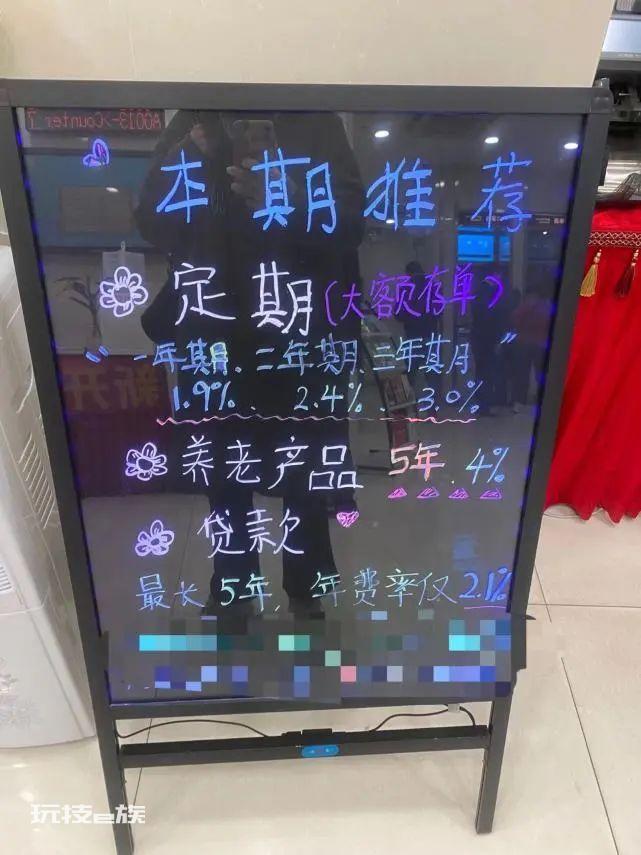 A0013->Counter 7
本期推荐
定期(大额存单)
“一年期、二年期、三年期”
1.9%、2.4%、3.0%
养老产品 5年、4%
贷款
最长5年,年费率仅2.1%
新开
玩技e族